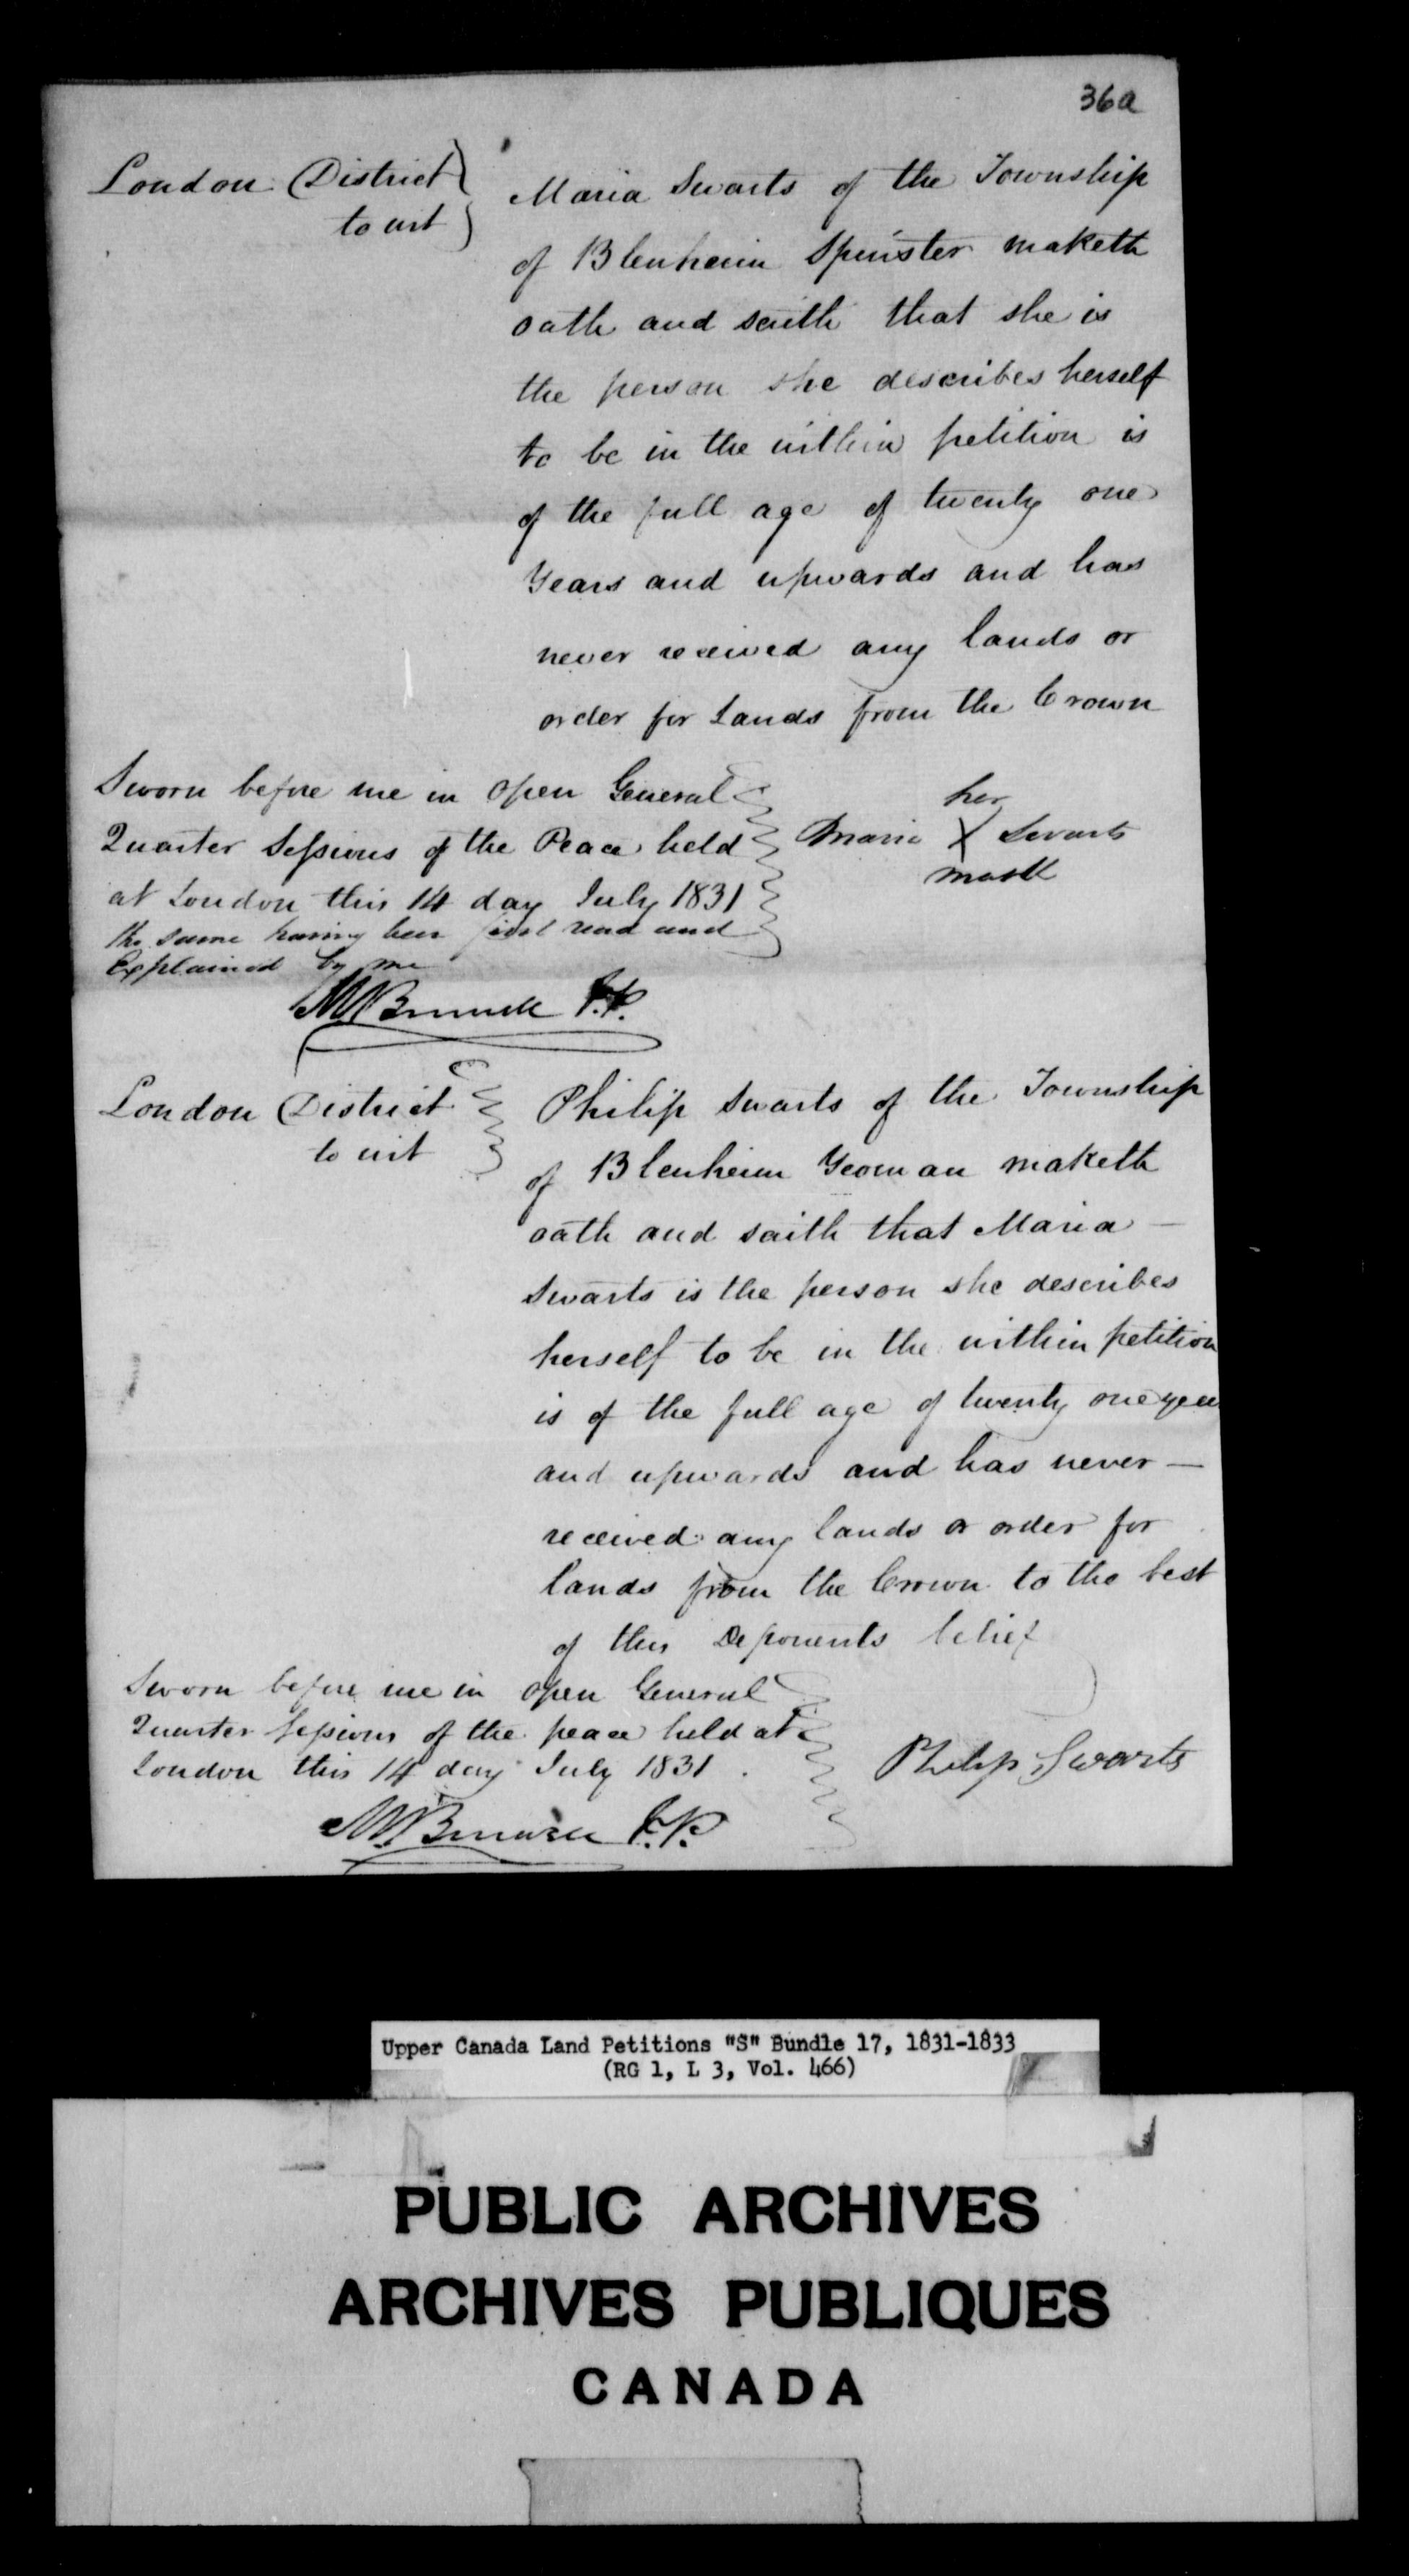 36a
London District
to wit
Maria Swarts of the Township
of Blenheim Spinster maketh
oath and saith that she is
the person she describes herself
to be in the within petition is
of the full age of twenty one
Years and upwards and has
never received any lands or
order for Lands from the Crown
Sworn before me in open General
Quarter Sessions of the Peace held
at London this 14 day July 1831
the same having been first read and
Explained by me
her
Maria X Swarts
mark
J.P.
London District
to wit
Philip Swarts of the Township
of Blenheim Yeoman maketh
oath and saith that Maria —
Swarts is the person she describes
herself to be in the within petition
is of the full age of twenty one year
and upwards and has never —
received any lands or order for
lands from the Crown to the best
of this Deponents belief
Sworn before me in open General
Quarter Sessions of the peace held at
London this 14 day July 1831.
Philip Swarts
J.P.
Upper Canada Land Petitions "S" Bundle 17, 1831-1833
(RG 1, L 3, Vol. 466)
PUBLIC ARCHIVES
ARCHIVES PUBLIQUES
CANADA